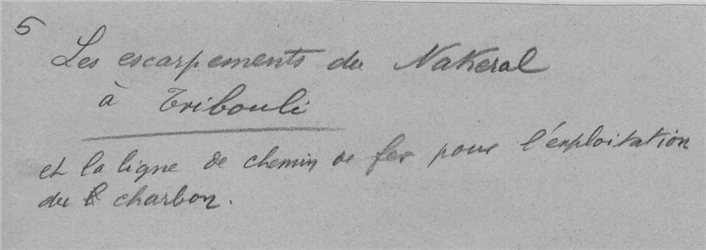 5
Les escarpements du Nakeral
à Tribouli
et la ligne de chemin de fer pour l'exploitation
du charbon.